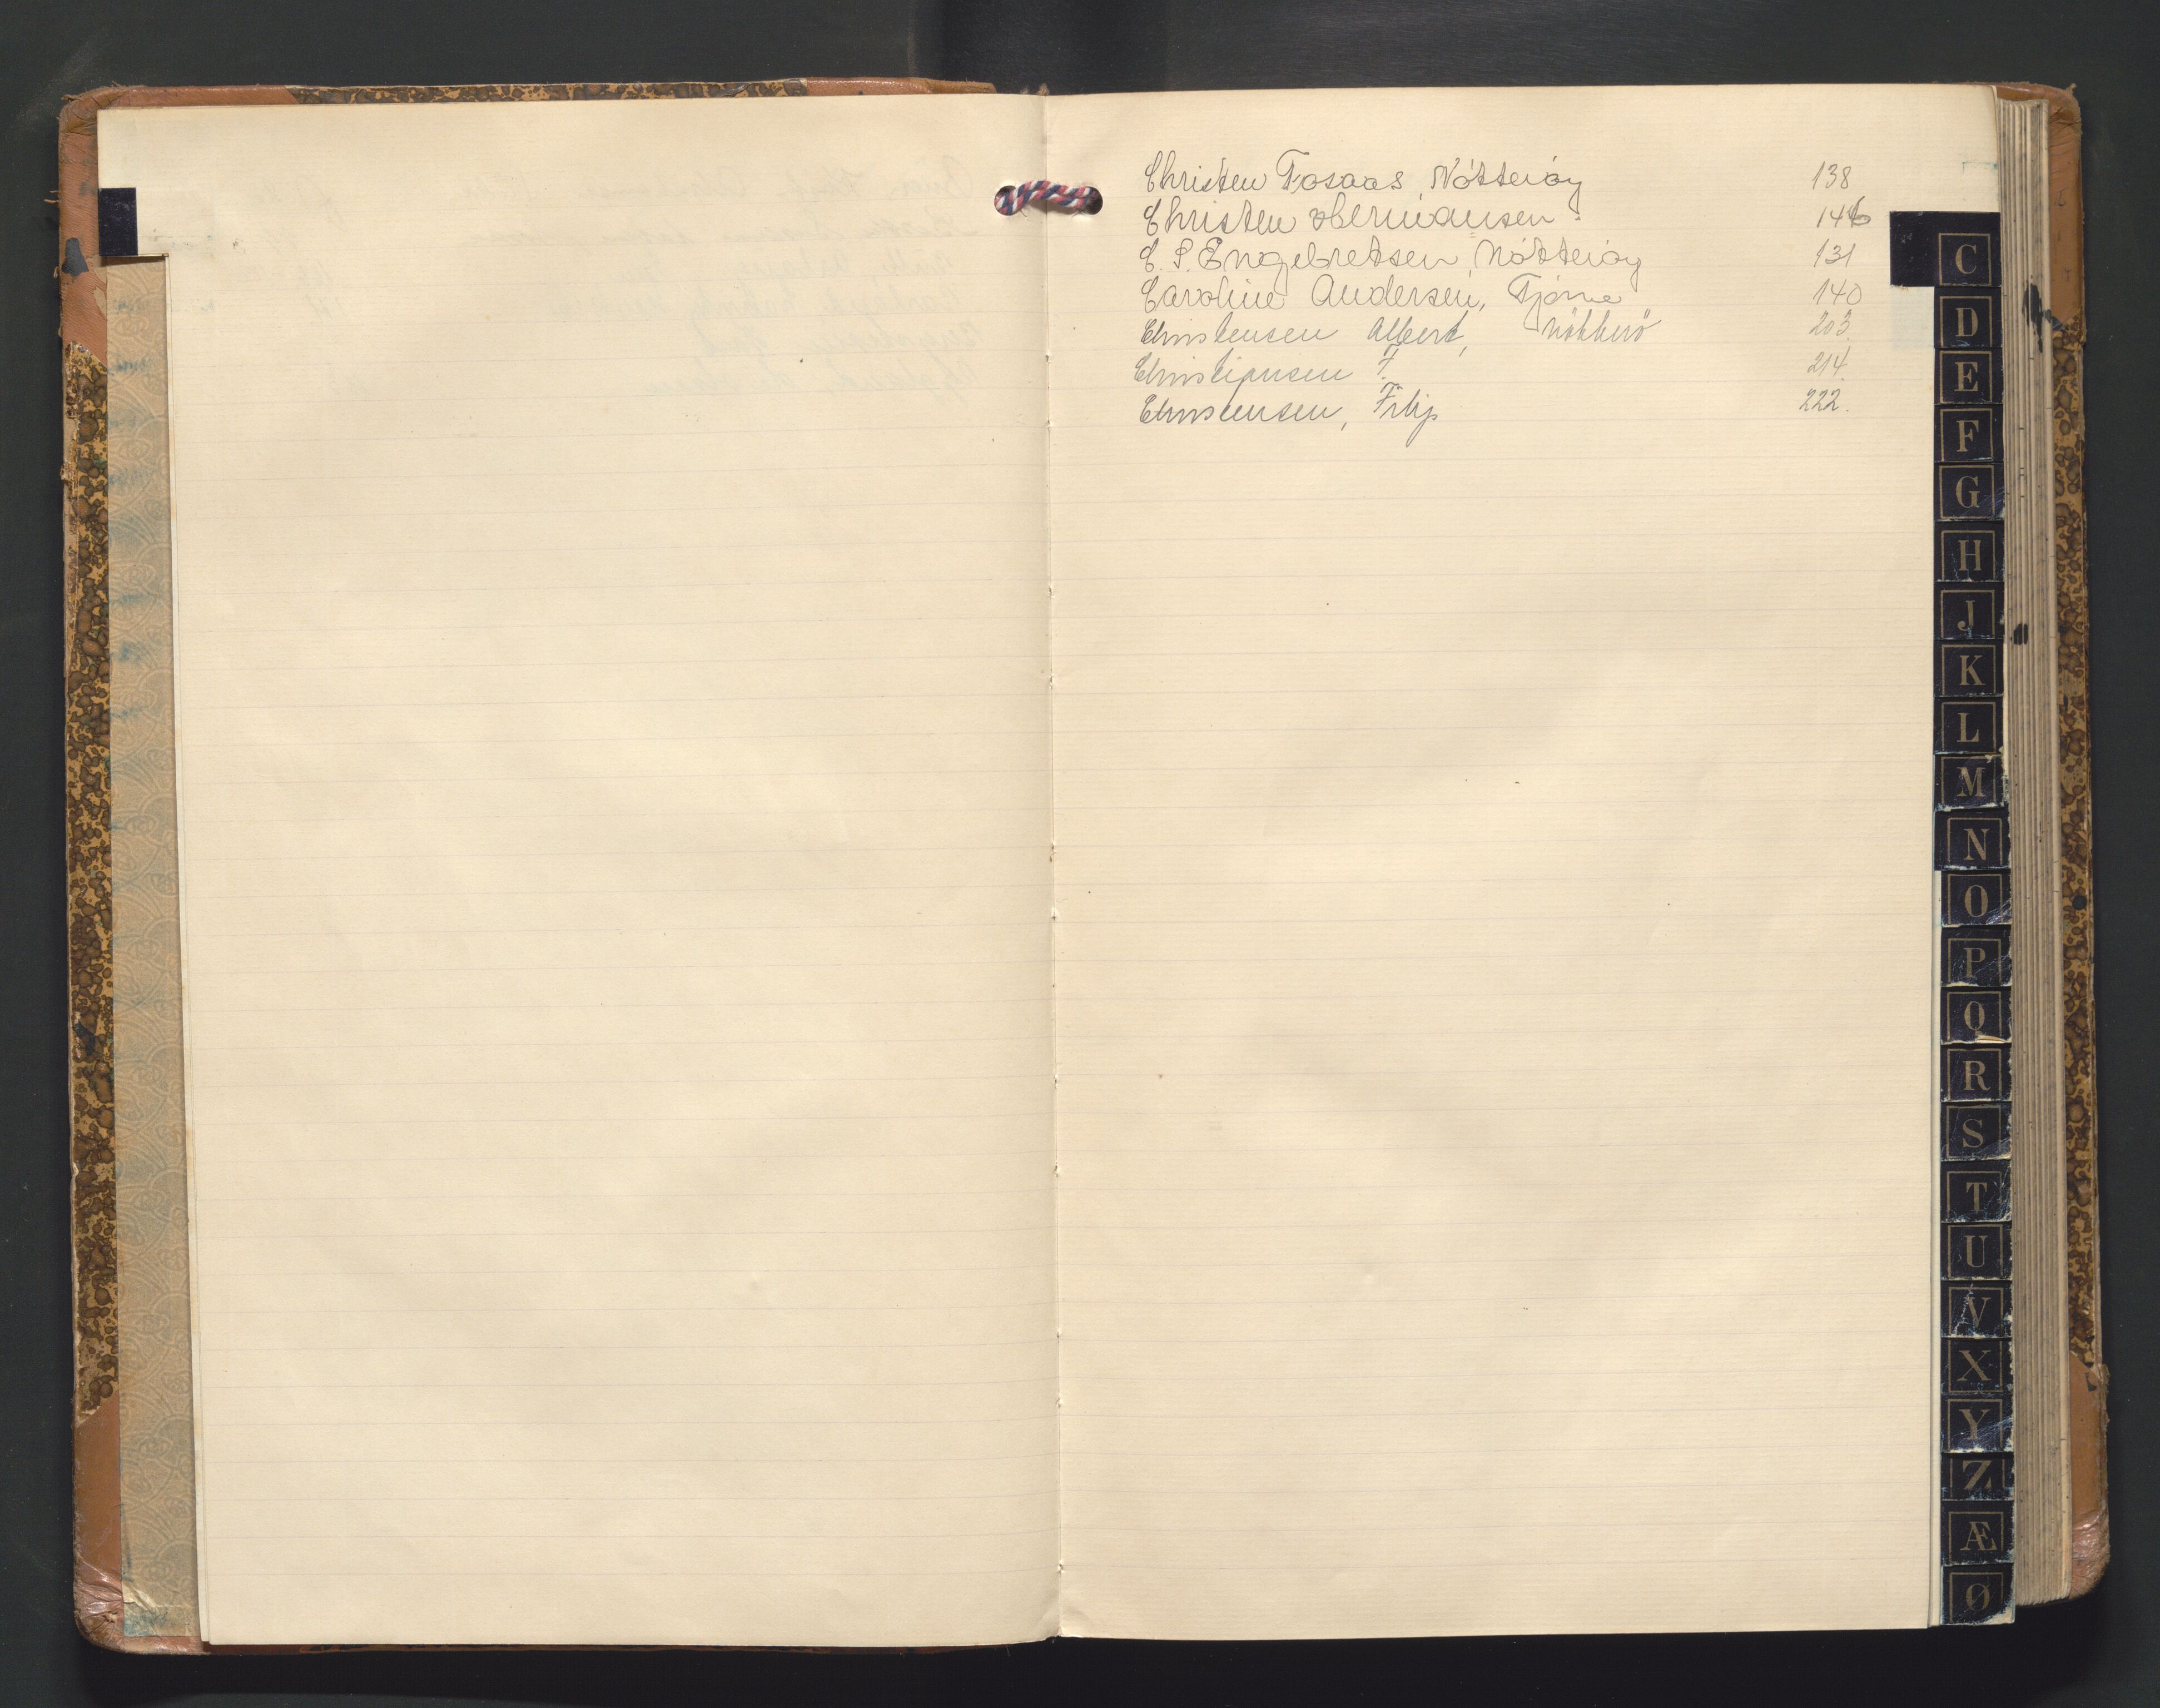 Christen Fosaas, Nötteröy 138
Christen Hermansen. 146
C. S. Engebretsen, Nötteröy 131
Caroline Andersen, Tjöme 140
Christensen Albert, Nötterö 203
Christiansen F. 214.
Christensen, Filip 222.
C
D
E
F
G
H
J
K
L
M
N
O
P
Q
R
S
T
U
V
X
Y
Z
Æ
Ø